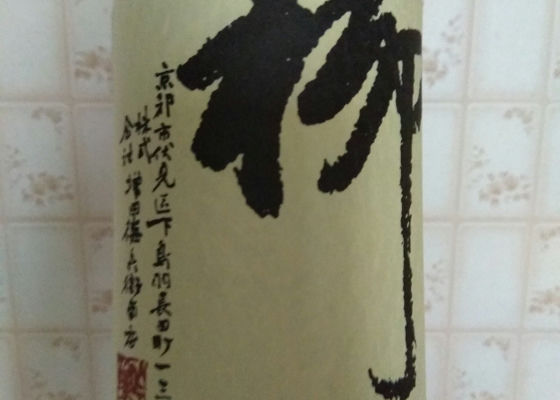 柳
京都市伏見区下鳥羽長田町一三
株式会社増田德兵衛商店